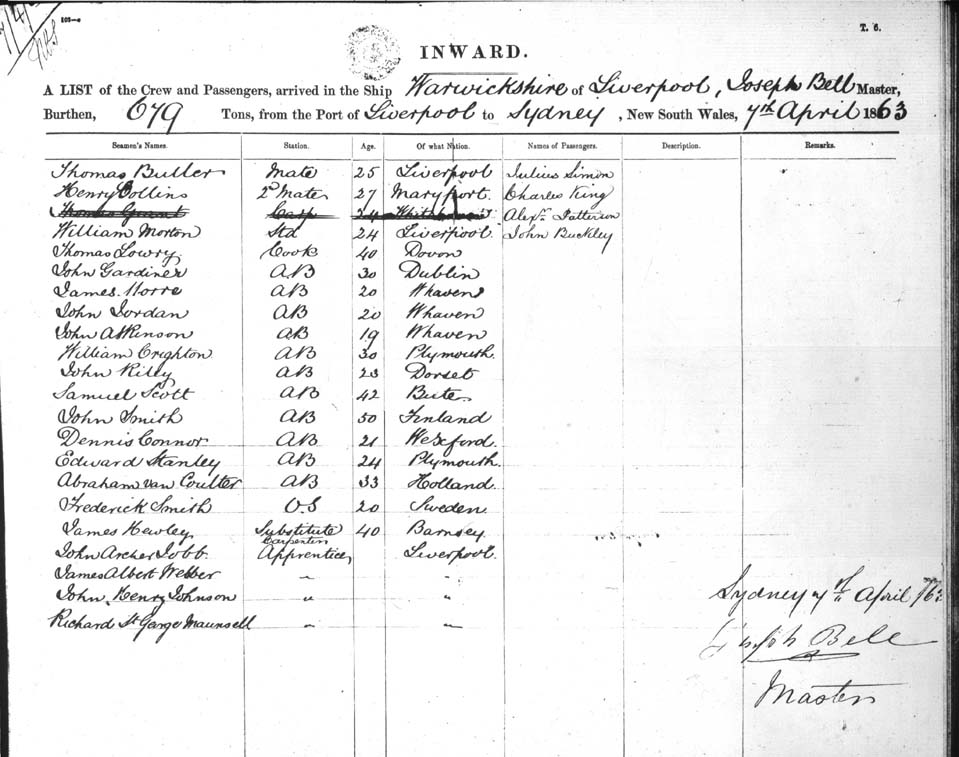 103—c
T. 6.
INWARD.
A LIST of the Crew and Passengers, arrived in the Ship Warwickshire of Liverpool, Joseph Bell Master,
Burthen, 679 Tons, from the Port of Liverpool to Sydney, New South Wales, 7th April 1863
Seamen's Names. Station. Age. Of what Nation. Names of Passengers. Description. Remarks.
Thomas Butler Mate 25 Liverpool Julius Simon
Henry Collins 2d Mate 27 Maryport. Charles King
Thomas Grant Carp 24 Alexr. Patterson
William Morton Std 24 Liverpool. John Buckley
Thomas Lowry. Cook 40 Dovon
John Gardiner AB 30 Dublin
James Morre AB 20 Whaven
John Jordan AB 20 Whaven
John Atkinson AB 19 Whaven
William Crighton AB 30 Plymouth.
John Riley AB 23 Dorset
Samuel Scott AB 42 Bute
John Smith AB 50 Finland
Dennis Connor AB 21 Wexford.
Edward Stanley AB 24 Plymouth.
Abraham van Coulter AB 33 Holland.
Frederick Smith O.S 20 Sweden.
James Hewley Substitute Carpenter 40 Barnsey.
John Archer Jobb. Apprentice Liverpool.
James Albert Webber " "
John Henry Johnson " "
Richard St George Maunsell " "
Sydney 7th April /63
Joseph Bell
Master